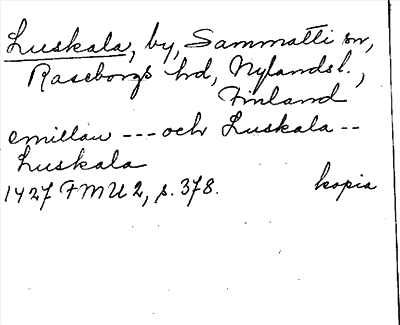 Luskala, by, Sammatti sn,
Raseborgs hd, Nylandsl.,
Finland
emillan --- och Luskala --
Luskala
1427 FMU 2, s. 378. kopia